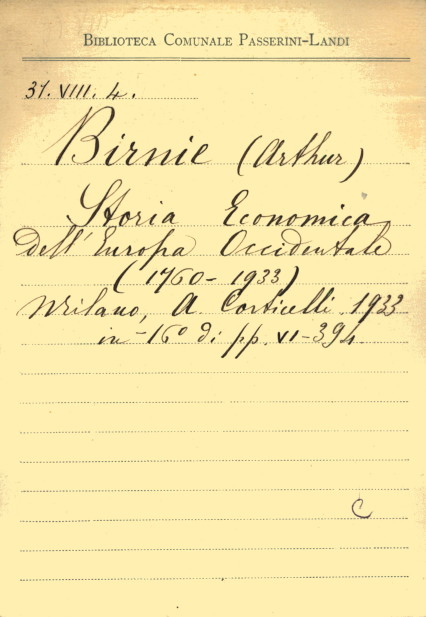 BIBLIOTECA COMUNALE PASSERINI-LANDI
31. VIII. 4.
Birnie (Arthur)
Storia Economica
dell'Europa Occidentale
(1760-1933)
Milano, A. Corticelli 1933
in-16º di pp. VI-394.
C